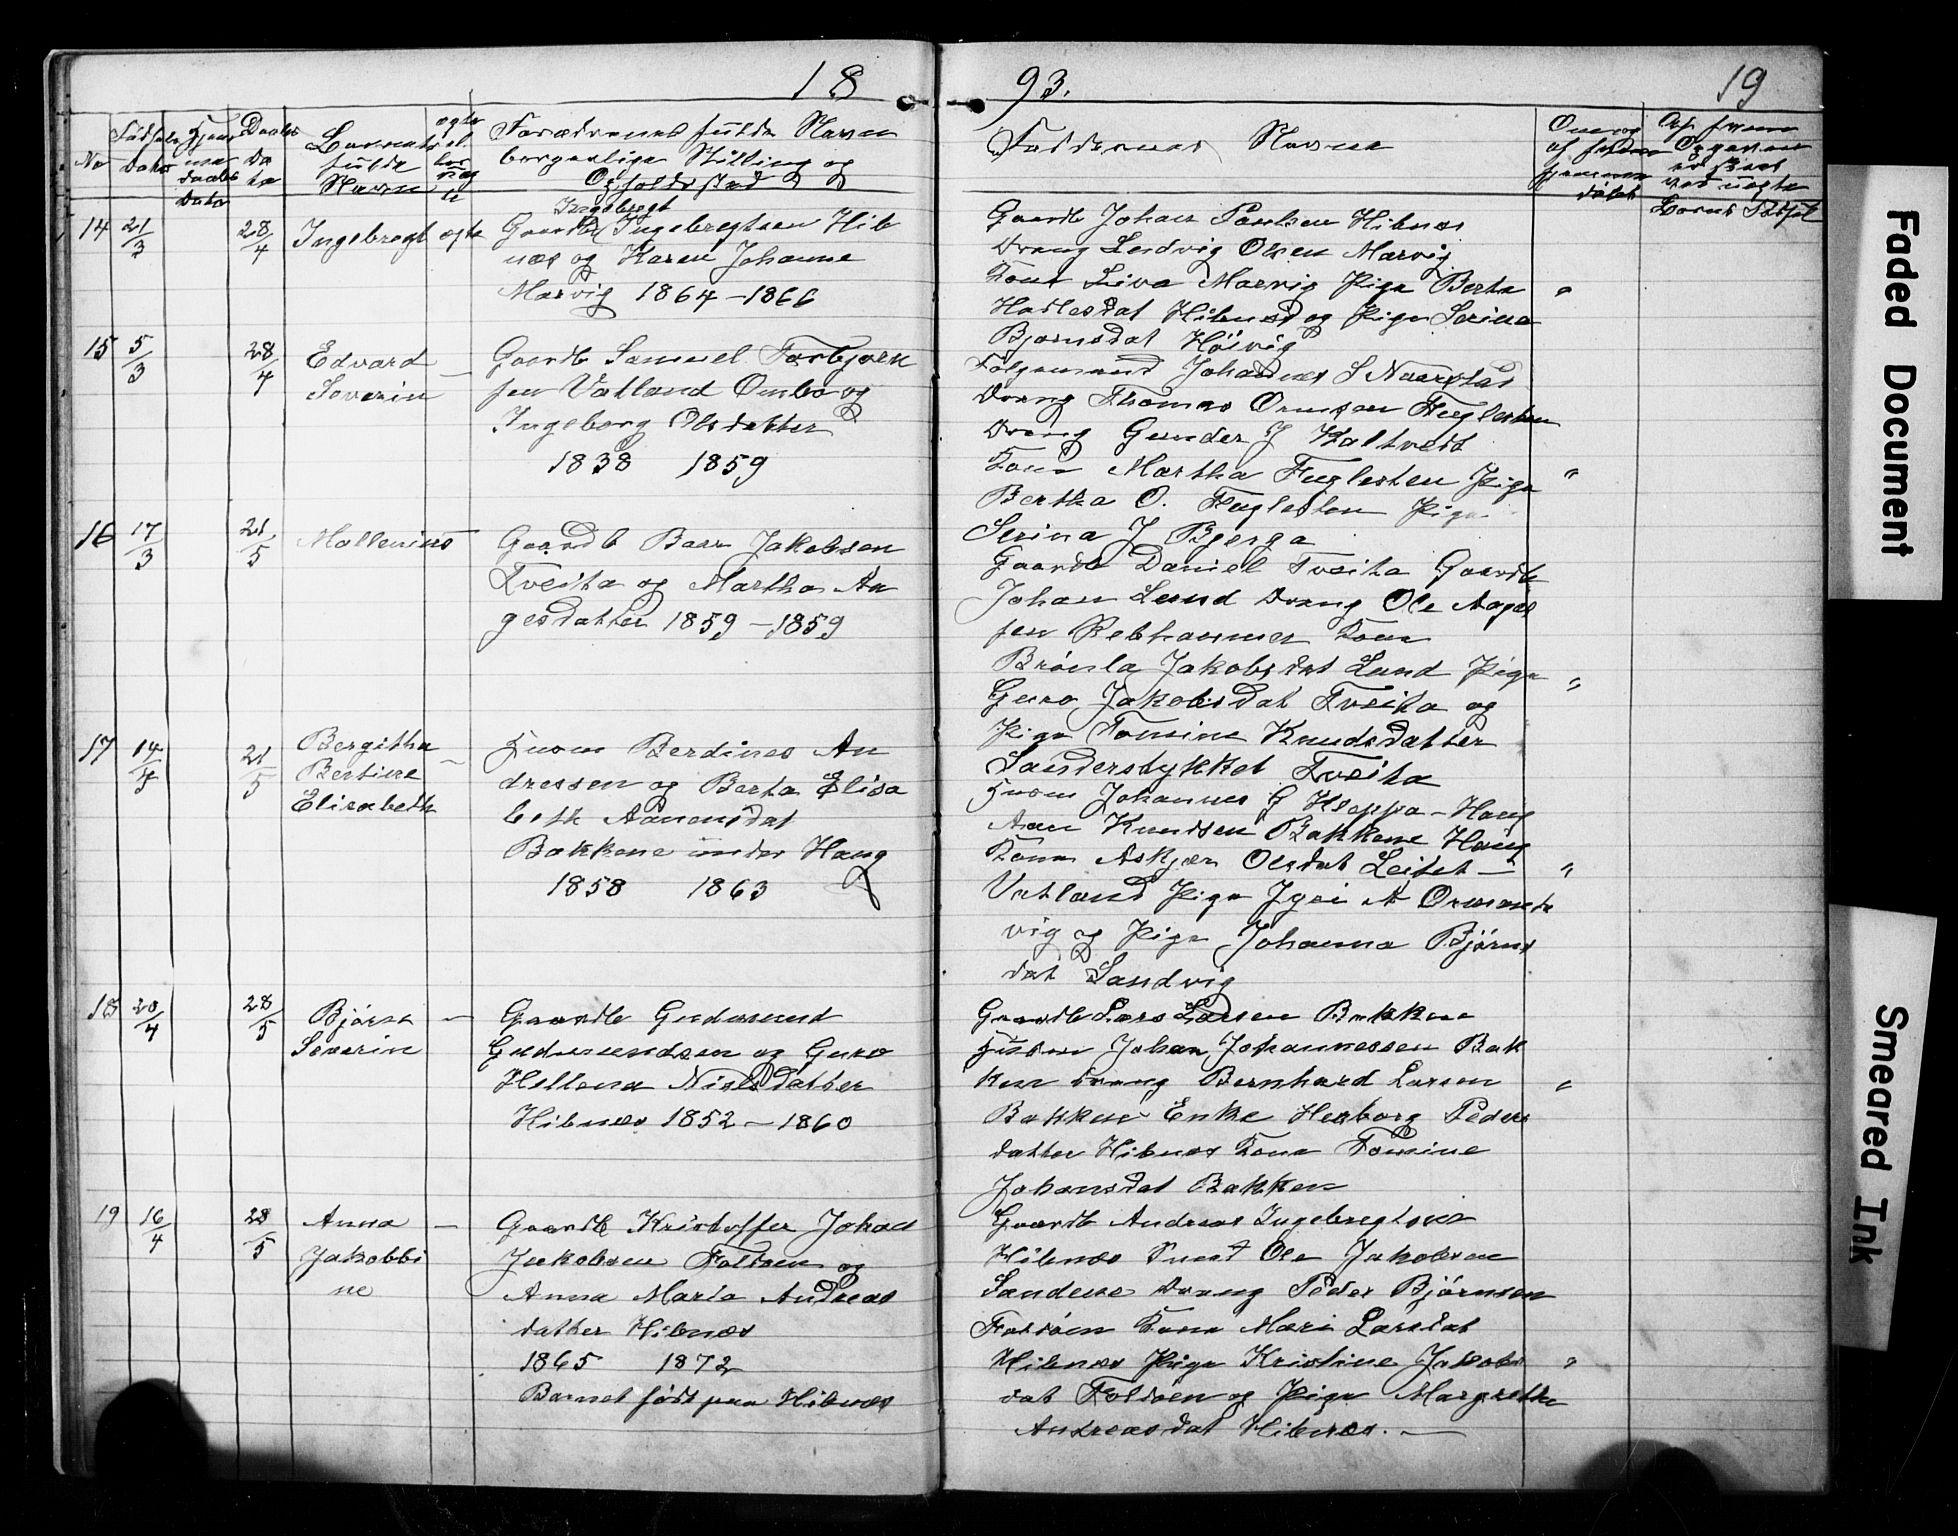 18
93.
19
No
Fødsels Dato
Hjemme daabs Dato
Daabs Dato
Barnets fulde Navn
ægte el. uægte
Forældrenes fulde Navn
borgerlige Stilling og
Opholdssted
Faddernes Navne
14 21/3 28/4 Ingebregt ægte
Ingebregt
Gaardb Ingebregtsen Hib
næs og Karen Johanne
Marvig 1864 - 1866
Gaardb Johan Paulsen Hibnæs
Dreng Ludvig Olsen Marvig
Kone Liva Marvig Pige Berta "
Hadlesdat Hibnæs og Pige Serina
Bjørnsdat Høivig
15 5/3 28/4 Edvard —
Severin
Gaardb Samuel Torbjørn
sen Vatland Ombo og
Ingeborg Olsdatter
1838 1859
Følgemand Johannes S Naarstad
Dreng Thomas Ormsen Fuglesten
Dreng Gunder J Kaltveit
Kone Martha Fuglesten Pige "
Bertha O. Fuglesten Pige
Serina J Bjerga
16 17/3 21/5 Mallenius
Gaardb Baar Jakobsen
Tveita og Martha Aa
gesdatter 1859 - 1859
Gaardb Daniel Tveita Gaardb
Johan Lund Dreng Ole Aages
sen Rebhammer Kone
Brønla Jakobsdat Lund Pige "
Guro Jakobsdat Tveita og
Pige Tomine Knudsdatter
Sanderstykket Tveita
17 14/4 21/5 Bergitha —
Bertine
Elisabeth
Husm Berdines An
dressen og Berta Elisa
beth Aanensdat
Bakkene under Haug
1858 1863
Husm Johannes G Hæppa - Haug
Aan Knudsen Bakkene Haug
Kone Askjær Olsdat Leitet — "
Vatland Pige Ygri A Ormsnte
vig og Pige Johanna Bjørns
dat Sandvig
18 20/4 28/5 Bjørn —
Severin
Gaardb Gudmund
Gudmundsen og Guro
Hellena Nielsdatter
Hibnæs 1852 - 1860
Gaardb Lars Larsen Bakken
Husm Johan Johannessen Bak
ken Dreng Bernhard Larsen "
Bakken Enke Herborg Peders
datter Hibnæs Kone Tomine
Johansdat Bakken
19 16/4 28/5 Anna —
Jakobbi
ne
Gaardb Kristoffer Johan
Jakobsen Foldøen og
Anna Maria Andreas
datter Hibnæs
1865 1872
Barnet født paa Hibnæs
Gaardb Andreas Ingebregtsen
Hibnæs Smed Ole Jakobsen
Sandene Dreng Peder Bjørnsen
Foldøen Kone Mari Larsdat
Hibnæs Pige Kristine Jakobs "
dat Foldøen og Pige Margrethe
Andreasdat Hibnæs. —
Faded Document
Smeared Ink